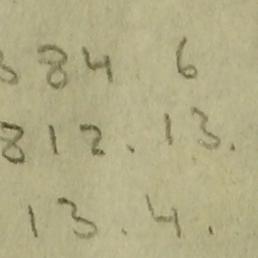 384 6
812.13.
13.4.